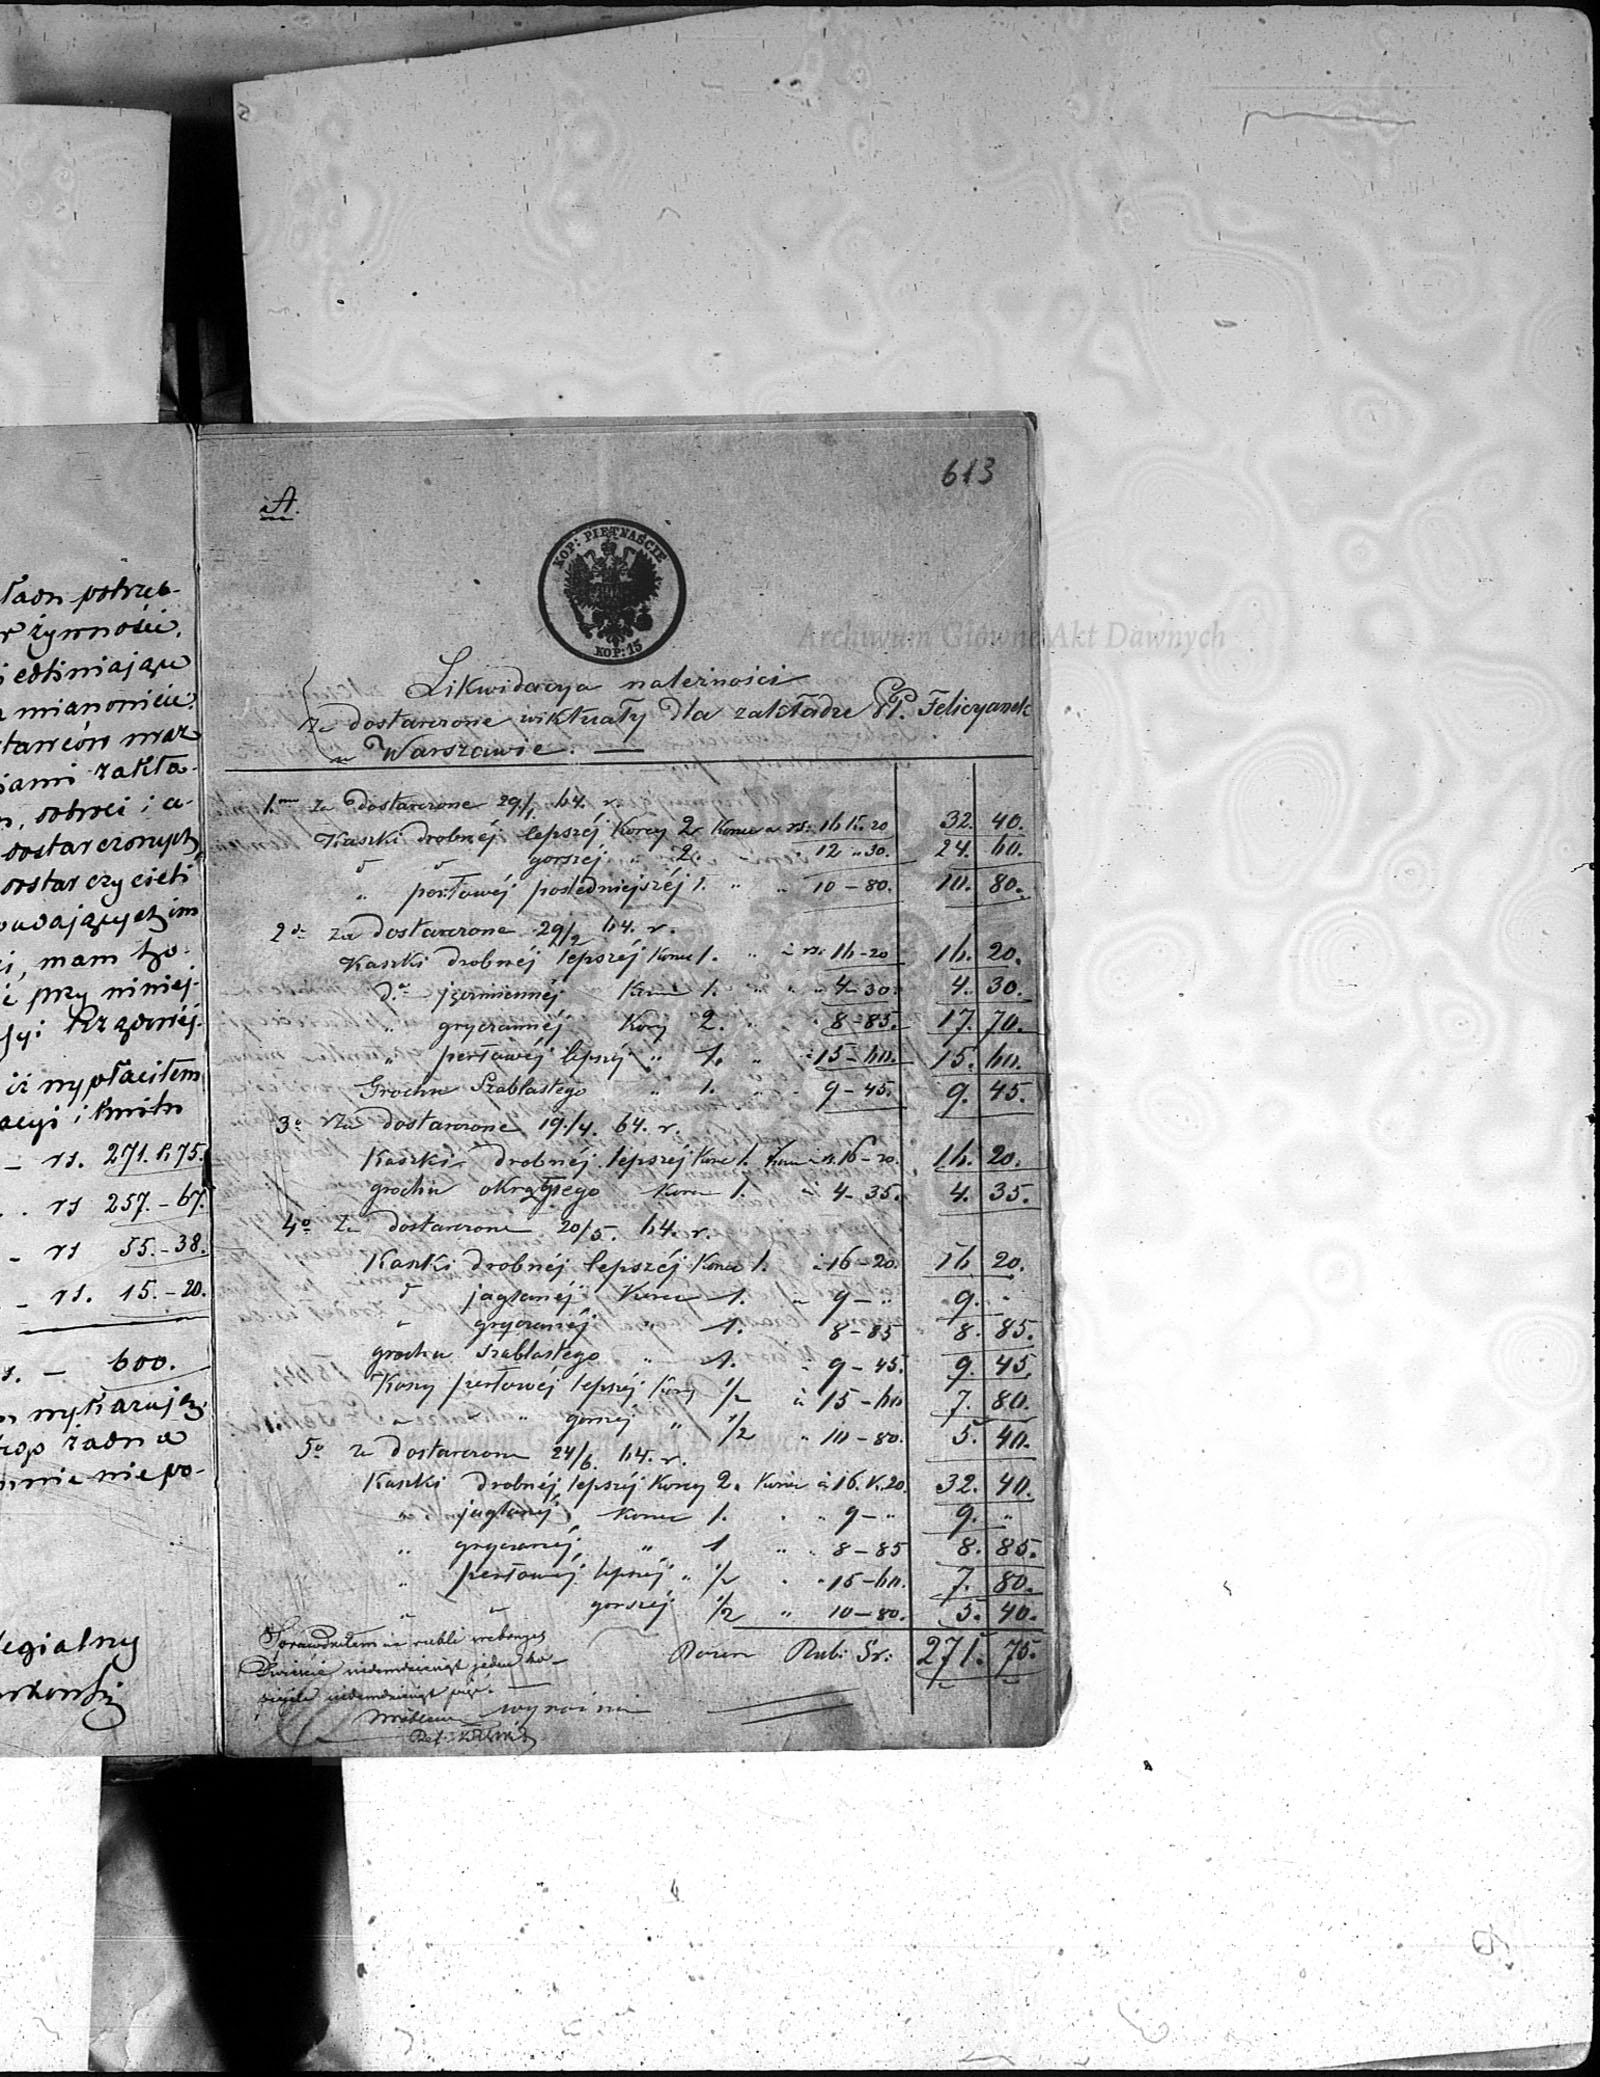 ładn potrzeb-
r żywności,
mianowicie:
stawców wraz
jami zakła-
dostarczonych,
dostarczycieli
padających im
ci, mam ho-
ć przy niniej-
Rządowéj.
iż wypłaciłem
acyi i kwitu
– rs. 271. k. 75.
. . rs 257. – 67.
– rs 55. – 38.
– rs. 15. – 20.
s. – 600.
żadna
mnie nie po-
legialny
613
A.
KOP: PIĘTNAŚCIE
KOP: 15
Archiwum Główne Akt Dawnych
Likwidacya należności
za dostarczone wiktuały dla zakładu PP. Felicyanek
w Warszawie. —
1mo za dostarczone 29/1 64. r.
Kaszki drobnéj lepszéj Korcy 2 Korzec a rs: 16 k. 20 32. 40.
" " gorszéj " 2. " 12 " 30. 24. 60.
" perłowéj poślednejszéj 1. " " 10 – 80. 10. 80.
2do za dostarczone 29/2 64. r.
Kaszki drobnéj lepszéj Korzec 1. " à rs: 16 – 20 16. 20.
do jęczmiennéj Korzec 1. " " 4 – 30. 4. 30.
" gryczannéj Korcy 2. " " 8 – 85. 17. 70.
" perłowéj lepszéj " 1. " " 15 – 60. 15. 60.
Grochu Szablastego " 1. " " 9 – 45. 9. 45.
3o Za dostarczone 19/4. 64. r.
Kaszki drobnéj lepszéj Korzec 1. Korzec à rs. 16 – 20. 16. 20.
grochu okrągłego Korzec 1. à 4 – 35. 4. 35.
4o Za dostarczone 20/5. 64. r.
Kaszki drobnéj lepszéj Korzec 1. à 16 – 20. 16 20.
d jaglanéj Korzec 1. " 9 – " 9. "
" gryczanéj " 1. 8 – 85 8. 85.
grochu szablastego " 1. " 9 – 45. 9. 45
Kaszy perłowéj lepszéj Korcy 1/2 à 15 – 60 7. 80.
" " gorszéj " 1/2 " 10 – 80. 5. 40.
5o za dostarczone 24/6. 64. r.
Kaszki drobnéj lepszéj Korcy 2. Korzec à 16. k. 20. 32. 40.
" jaglanéj Korzec 1. " " 9 – " 9. "
" gryczanéj " 1 " " 8 – 85 8. 85.
" perłowéj lepszéj " 1/2 " " 15 – 60. 7. 80.
" " gorszéj 1/2 " 10 – 80. 5. 40.
Razem Rub: Sr: 271. 75.
Sprawdziłem na rubli srebrnych
Dwieście siedemdziesiąt jeden ko-
piejek siedemdziesiąt pięć. —